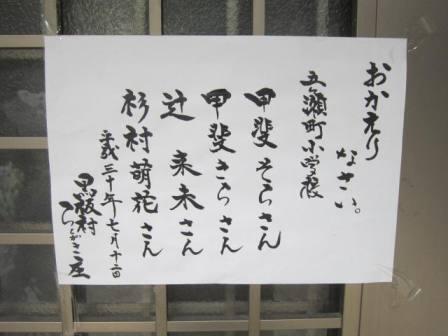 おかえり
なさい。
五ヶ瀬町小学校
甲斐そらさん
甲斐きらさん
辻 来未さん
杉村萌花さん
平成三十年七月十二日
黒板村
さこがき庄